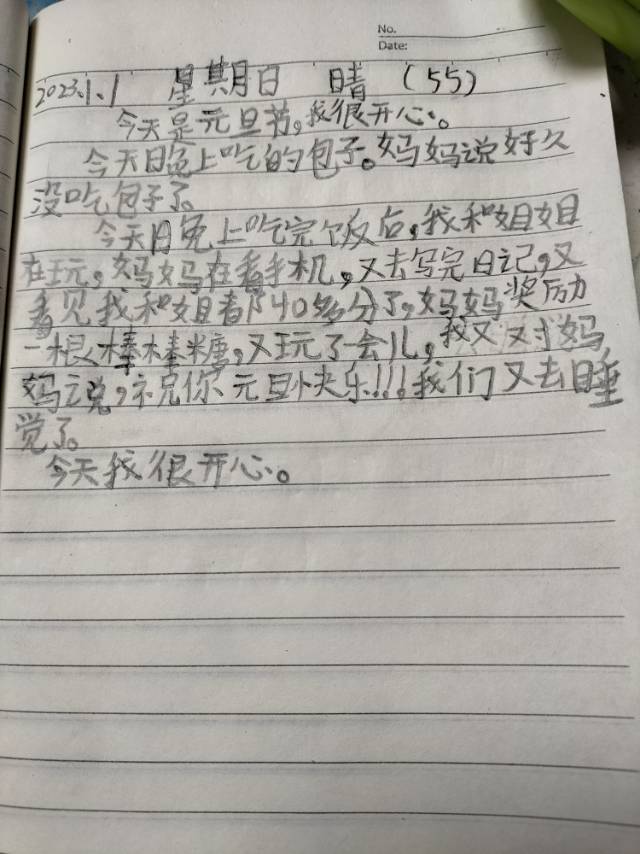 No.
Date:
2023.1.1 星期日 晴 (55)
今天是元旦节,我很开心。
今天晚上吃的包子。妈妈说好久
没吃包子了。
今天晚上吃完饭后,我和姐姐
在玩,妈妈在看手机,又去写完日记,又
看见我和姐都40多分了,妈妈奖励
一根棒棒糖,又玩了一会儿,我又对妈
妈说,祝你元旦快乐!!!我们又去睡
觉了。
今天我很开心。